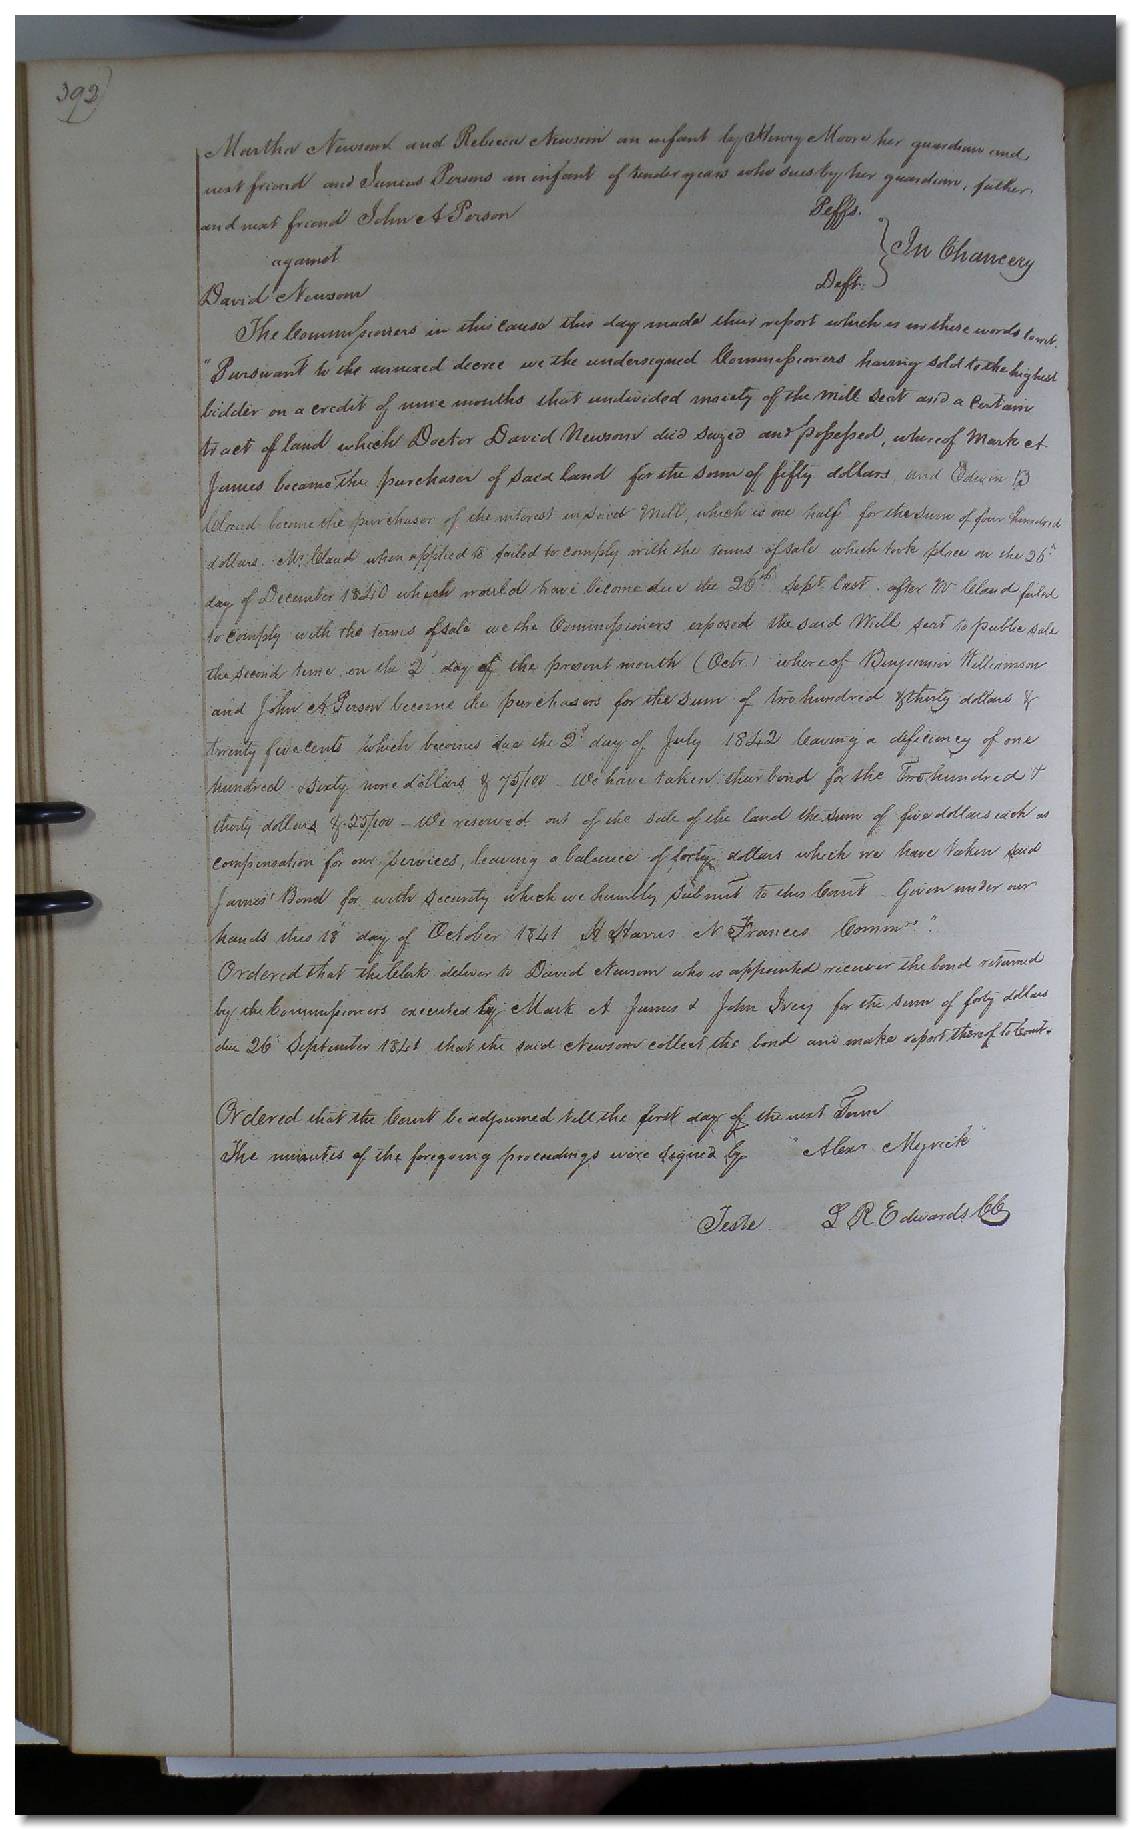 392
Martha Newsom and Rebecca Newsom an infant by Henry Moore her guardian and
next friend and Junius Persons an infant of tender years who sues by her guardian, father
and next friend John A Person Peffs.
against In Chancery
David Newsom Deft.
The Commissioners in this cause this day made their report which is in these words towit.
"Pursuant to the annexed decree we the undersigned Commissioners having sold to the highest
bidder on a credit of nine months that undivided moiety of the mill seat and a certain
tract of land which Doctor David Newsom died seized and possessed, whereof Mark A
James became the purchaser of said land for the sum of fifty dollars and Edwin B
Claud become the purchaser of the interest in said Mill, which is one half for the sum of four hundred
dollars. Mr. Claud when applied to failed to comply with the terms of sale which took place on the 26th
day of December 1840 which would have become due the 26th Sept. last. after Mr Claud failed
to comply with the terms of sale we the Commissioners exposed the said Mill seat to public sale
the second time on the 2d day of the present month (Octr.) whereof Benjamin Williamson
and John A Person become the purchasers for the sum of two hundred & thirty dollars &
twenty five cents which becomes due the 2d day of July 1842 leaving a deficiency of one
hundred & sixty nine dollars & 75/100 - We have taken their bond for the Two hundred &
thirty dollars & 25/100 - We reserved out of the sale of the land the sum of five dollars each as
compensation for our services, leaving a balance of forty dollars which we have taken said
James' Bond for with security which we humbly submit to this Court Given under our
hands this 18 day of October 1841 H Harris N Frances Commrs."
Ordered that the Clerk deliver to David Newsom who is appointed receiver the bond returned
by the Commissioners executed by Mark A James & John Ivey for the sum of forty dollars
due 26 September 1841 that the said Newsom collect the bond and make report thereof to Court.
Ordered that the Court be adjourned till the first day of the next Term
The minutes of the foregoing proceedings were signed by "Alexr Myrick"
Teste L R Edwards CC